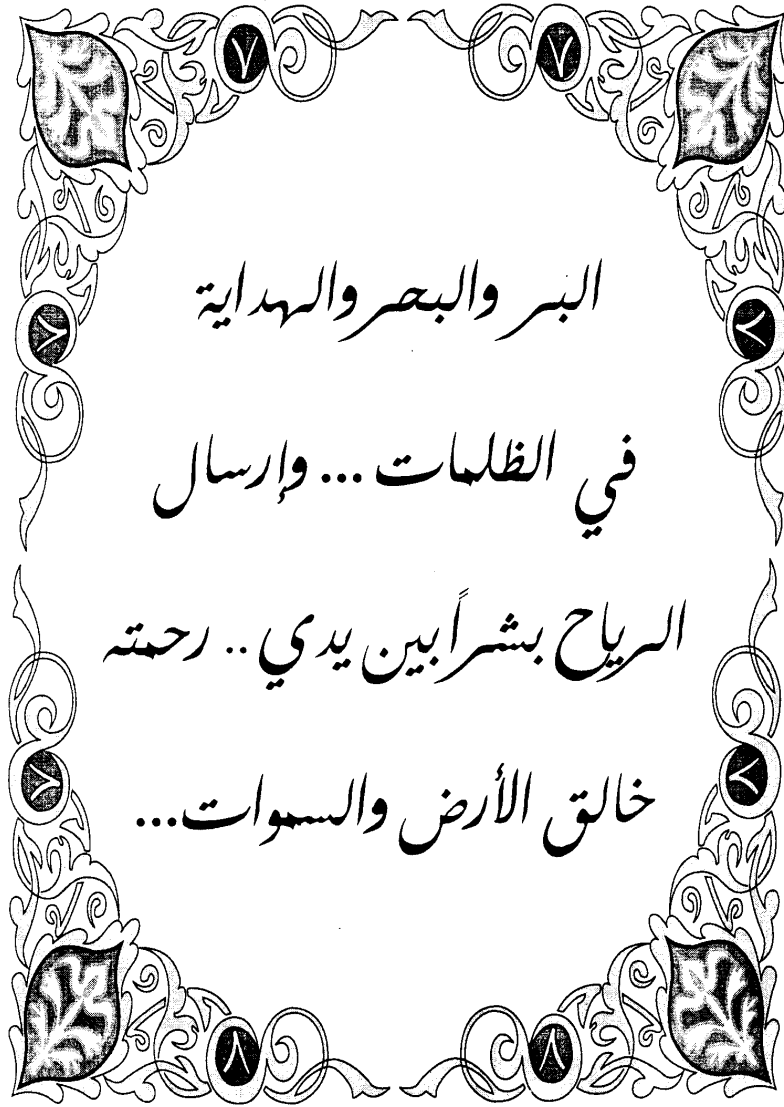 البر والبحر والهداية
في الظلمات ... وإرسال
الرياح بشراً بين يدي .. رحمته
خالق الأرض والسموات...